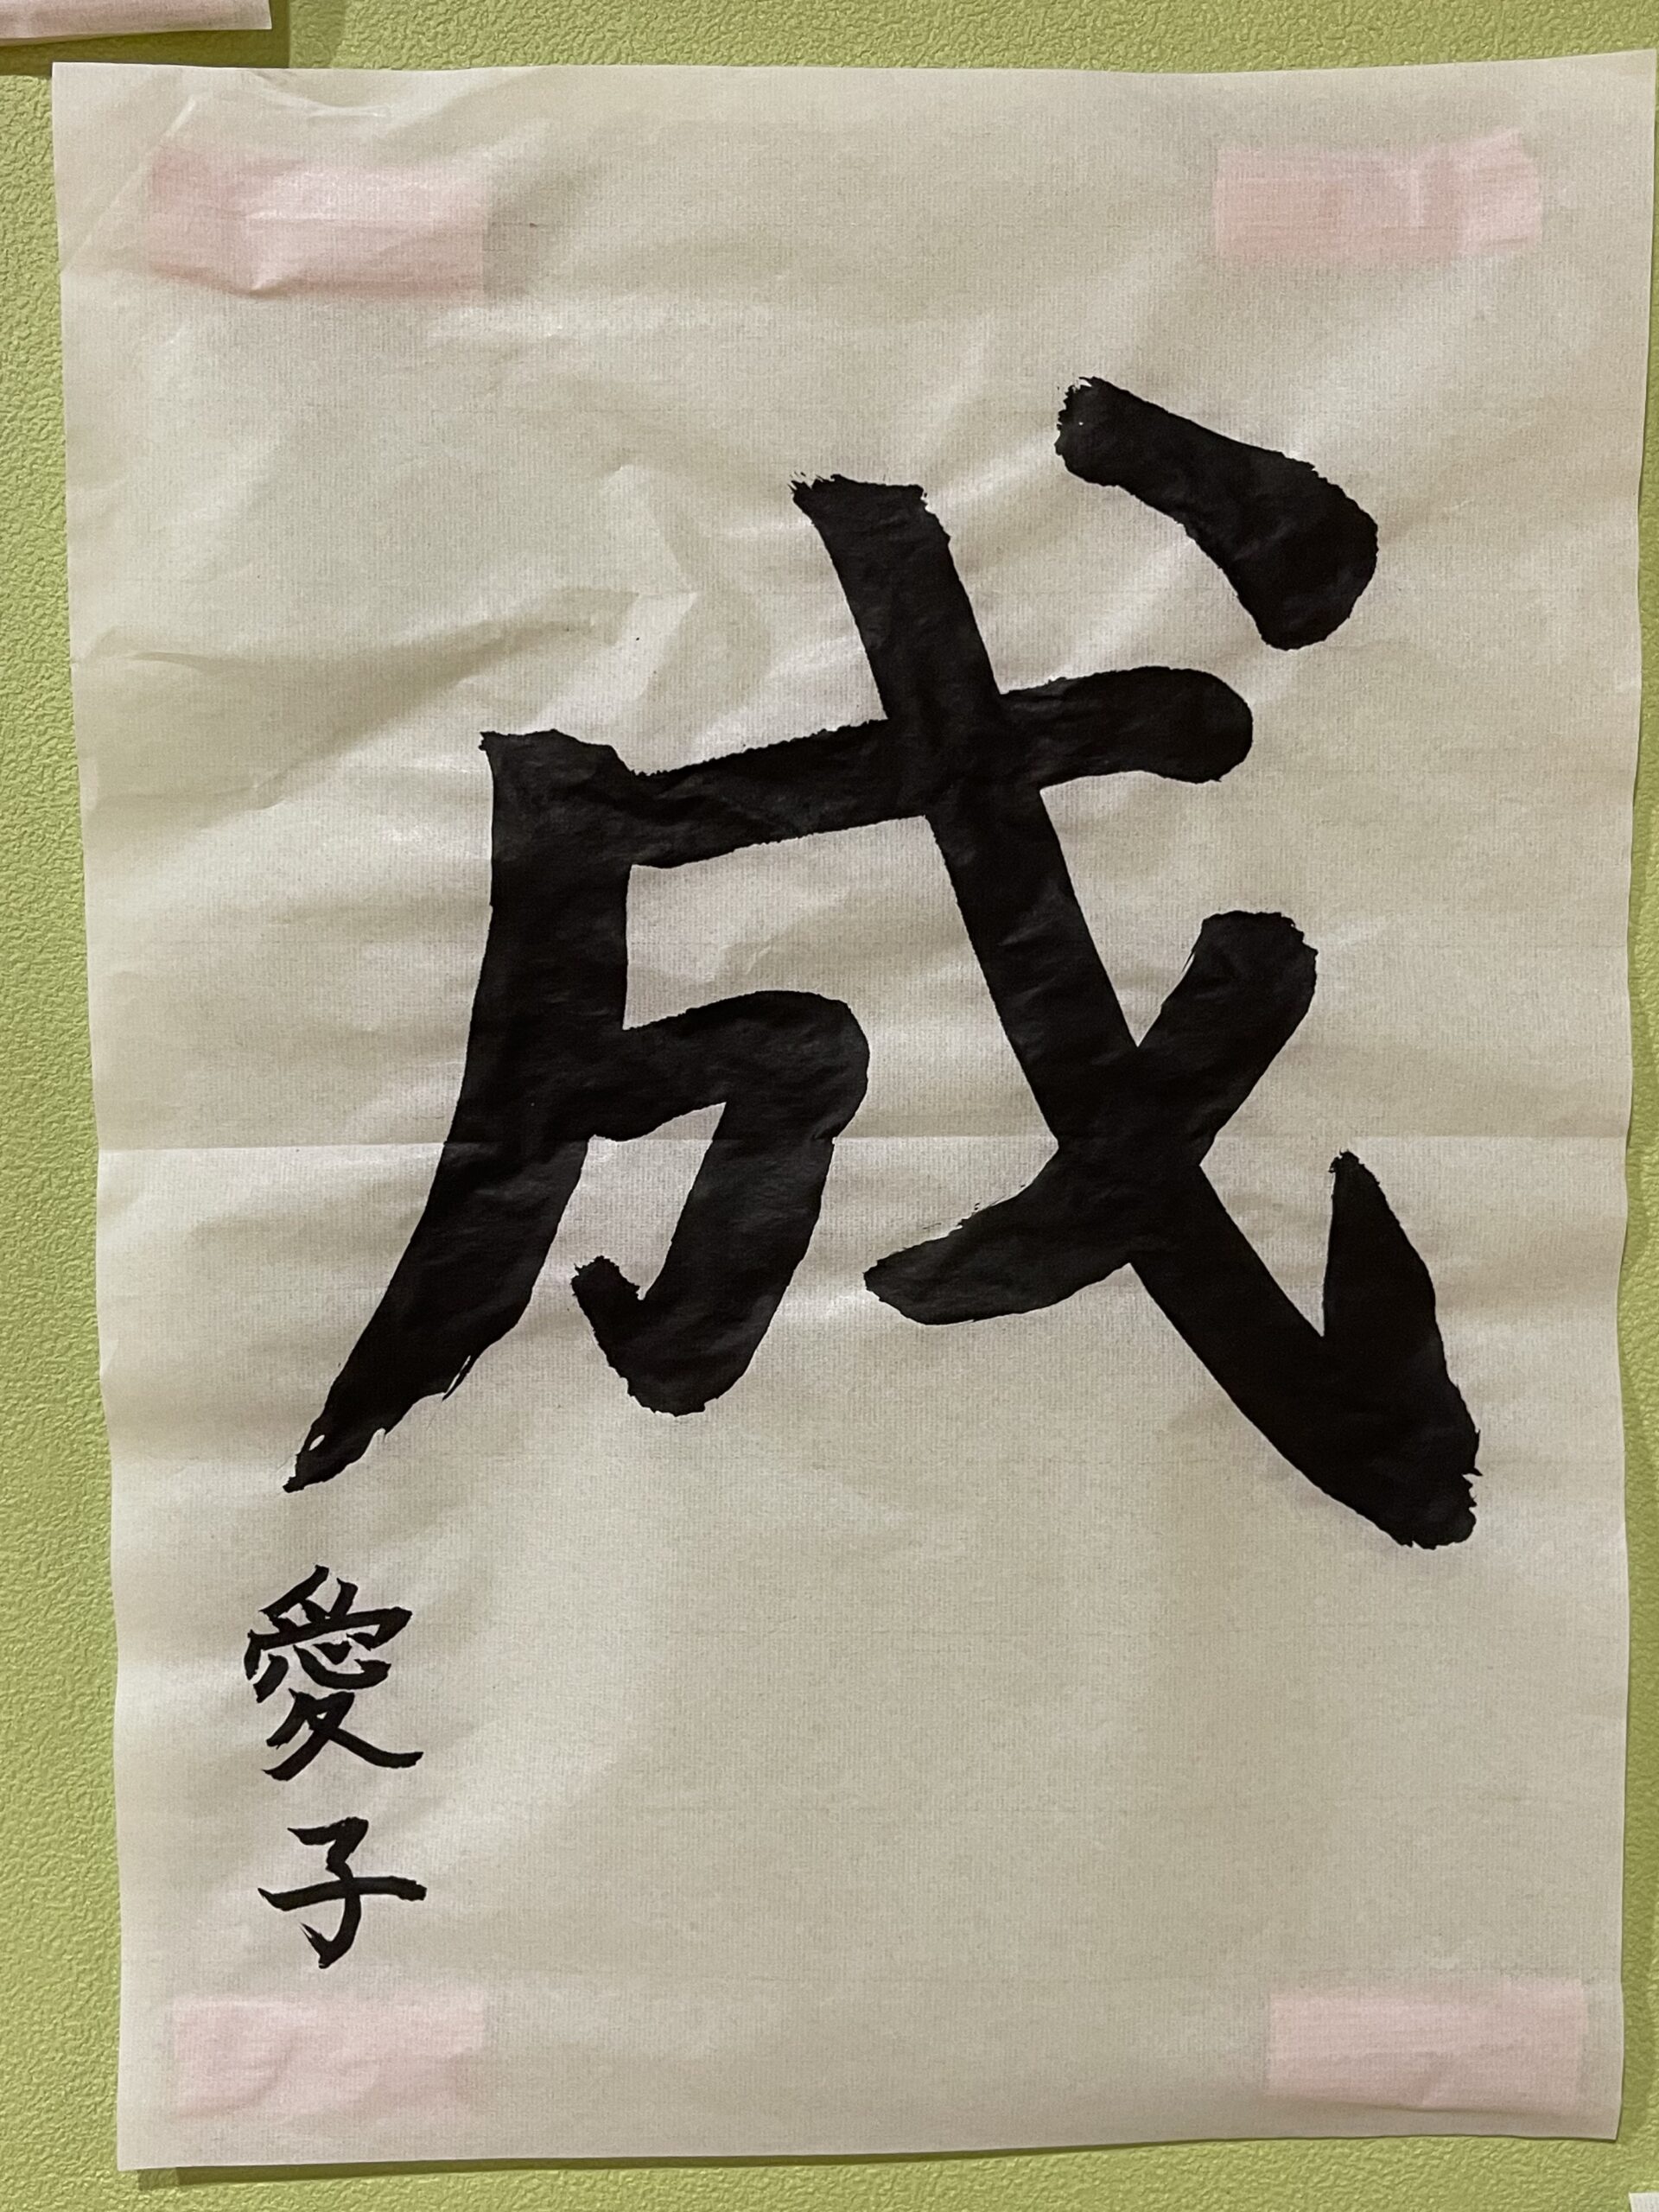 成
愛子